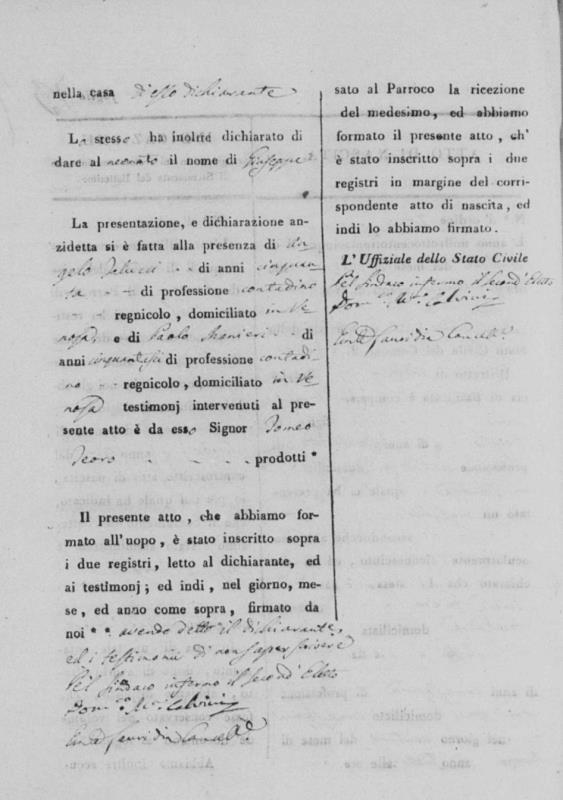 nella casa d'esso dichiarante
Lo stesso ha inoltre dichiarato di
dare al neonato il nome di Giuseppe
La presentazione, e dichiarazione an-
zidetta si è fatta alla presenza di An
gelo Telucci - - di anni cinquan
ta - - di professione contadino
regnicolo, domiciliato in Ve
nosa e di Paolo Ranieri - di
anni cinquantasei di professione contadi
no - - regnicolo, domiciliato in Ve
nosa testimonj intervenuti al pre-
sente atto è da esso Signor Tomeo
Teoro - - - - prodotti *
Il presente atto, che abbiamo for-
mato all'uopo, è stato inscritto sopra
i due registri, letto al dichiarante, ed
ai testimonj; ed indi, nel giorno, me-
se, ed anno come sopra, firmato da
noi ** avendo detto il dichiarante,
ed i testimonii di non saper scrivere
Pel Sindaco infermo il second' Eletto
Dom.co
sato al Parroco la ricezione
del medesimo, ed abbiamo
formato il presente atto, ch'
è stato inscritto sopra i due
registri in margine del corri-
spondente atto di nascita, ed
indi lo abbiamo firmato.
L'Uffiziale dello Stato Civile
Pel Sindaco infermo il second' Eletto
Dom.co